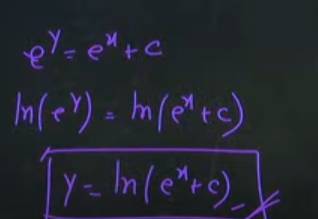 e^y = e^x + c
ln(e^y) = ln(e^x + c)
y = ln(e^x + c)